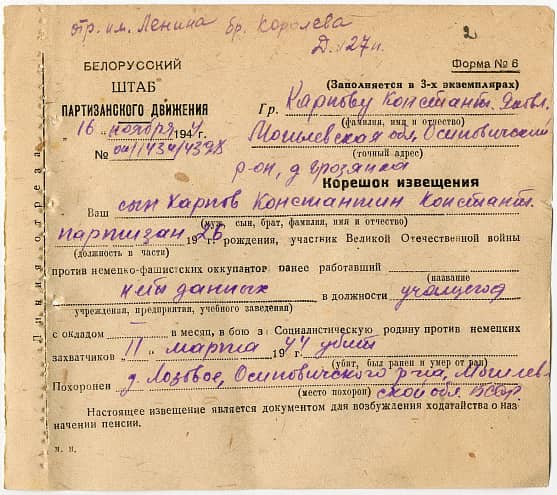 отр. им. Ленина бр. Королева
Д. 27 п.
2
БЕЛОРУССКИЙ
ШТАБ
ПАРТИЗАНСКОГО ДВИЖЕНИЯ
" 16 " ноября 1944 г.
№ оп/1434/4328
Форма № 6
(Заполняется в 3-х экземплярах)
Гр. Карпову Константи. Яковл.
(фамилия, имя и отчество)
Могилевская обл, Осиповичский
(точный адрес)
р-он, д Грозянка
Корешок извещения
Ваш сын Карпов Константин Константи.
(муж, сын, брат, фамилия, имя и отчество)
партизан 26 19 г. рождения, участник Великой Отечественной войны
(должность в части)
против немецко-фашистских оккупантов ранее работавший
(название
нет данных в должности учащегося
учреждения, предприятия, учебного заведения)
с окладом в месяц, в бою за Социалистическую родину против немецких
захватчиков " 11 " марта 1944 г. убит
(убит, был ранен и умер от ран)
Похоронен д. Лозовое, Осиповичского р-на, Могилев-
(место похорон) ской обл. БССР
Настоящее извещение является документом для возбуждения ходатайства о наз
начении пенсии.
м. п.
Линия отреза